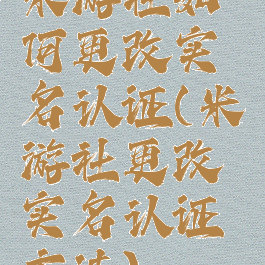 米游社如
何更改实
名认证(米
游社更改
实名认证
方法)